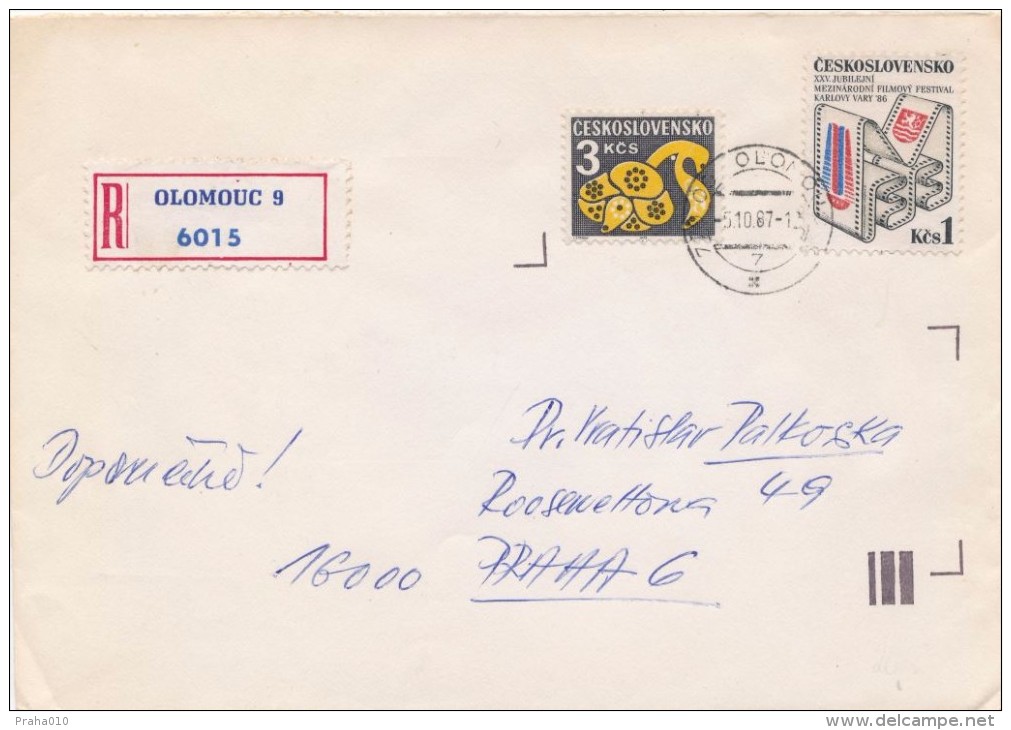 ČESKOSLOVENSKO
XXV. JUBILEJNÍ
MEZINÁRODNÍ FILMOVÝ FESTIVAL
KARLOVY VARY '86
Kčs 1
ČESKOSLOVENSKO
3 KČS
OLOMOUC
-5.10.87-1
7
R
OLOMOUC 9
6015
Doporučeně!
Dr. Vratislav Palkoska
Rooseveltova 49
16000 PRAHA 6
Praha010
delcampe.net